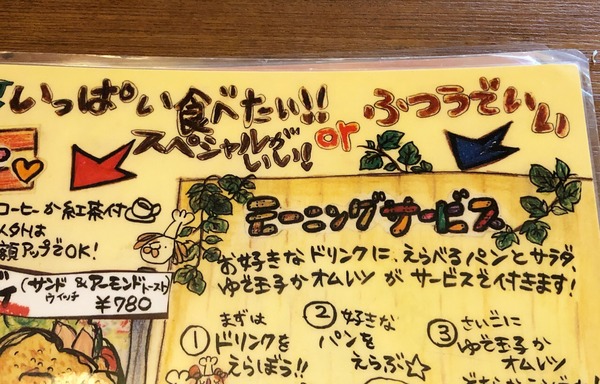 いっぱい食べたい!!
スペシャルが
いい!!
or
ふつうでいい
コーヒーか紅茶付
メタトは
額アップでOK!
(サンド & アーモンドトースト)
ウィッチ
¥780
モーニングサービス
お好きなドリンクに、えらべるパンとサラダ、
ゆで玉子かオムレツ がサービスで付きます!
① まずは
ドリンクを
えらぼう!!
② 好きな
パンを
えらぶ☆
③ さいごに
ゆで玉子か
オムレツ